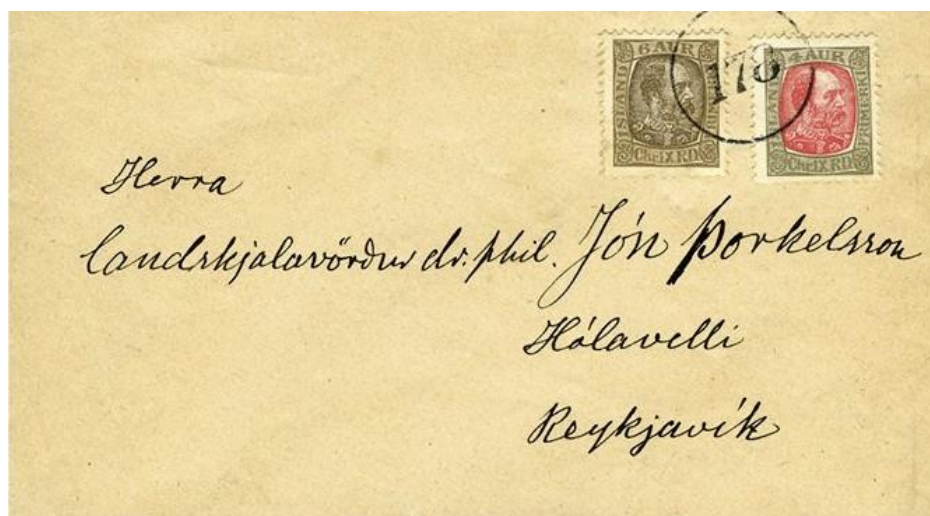 6 AUR
ÍSLAND
CHRIX RD
178
4 AUR
FRIMERKI
CHRIX RD
Herra
landskjalavörður dr. phil. Jón Þorkelsson
Hólavelli
Reykjavík